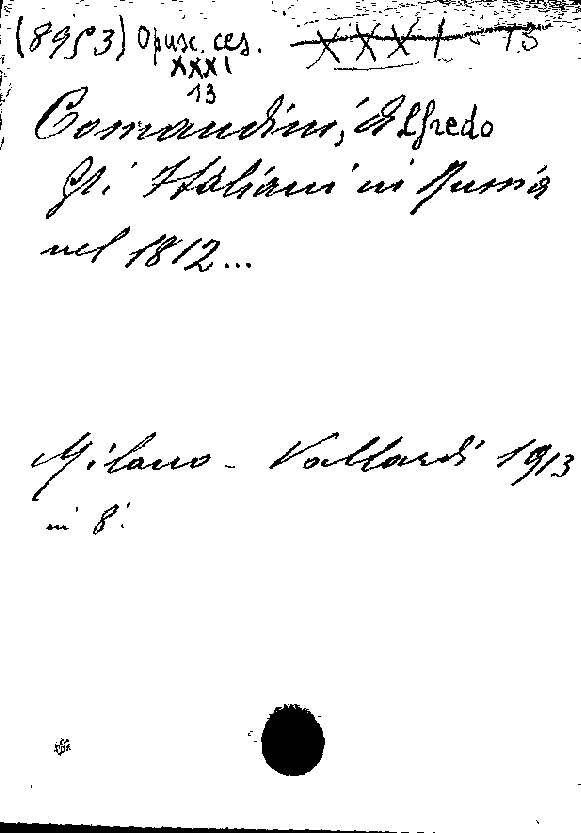 (8953) Opusc. ces. XXXI - 13
XXXI
13
Comandini, Alfredo
Gli Italiani in Russia
nel 1812...
Milano - Vallardi 1913
in 8.